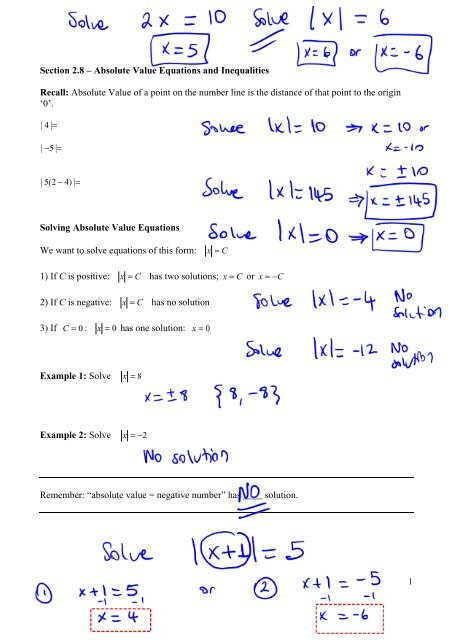 Solve 2x = 10 Solve |x| = 6
x = 5 x = 6 or x = -6
Section 2.8 – Absolute Value Equations and Inequalities
Recall: Absolute Value of a point on the number line is the distance of that point to the origin
‘0’.
| 4 |=
Solve |x| = 10 ⇒ x = 10 or
| −5 |=
x = -10
x = ±10
| 5(2 − 4) |=
Solve |x| = 145 ⇒ x = ±145
Solving Absolute Value Equations
Solve |x| = 0 ⇒ x = 0
We want to solve equations of this form: |x| = C
1) If C is positive: |x| = C has two solutions; x = C or x = −C
2) If C is negative: |x| = C has no solution
Solve |x| = -4 No solution
3) If C = 0 : |x| = 0 has one solution: x = 0
Solve |x| = -12 No solution
Example 1: Solve |x| = 8
x = ±8 {8, -8}
Example 2: Solve |x| = −2
No solution
Remember: “absolute value = negative number” has NO solution.
Solve |x+1| = 5
1 x+1 = 5 or 2 x+1 = -5
-1 -1 -1 -1
x = 4 x = -6
1